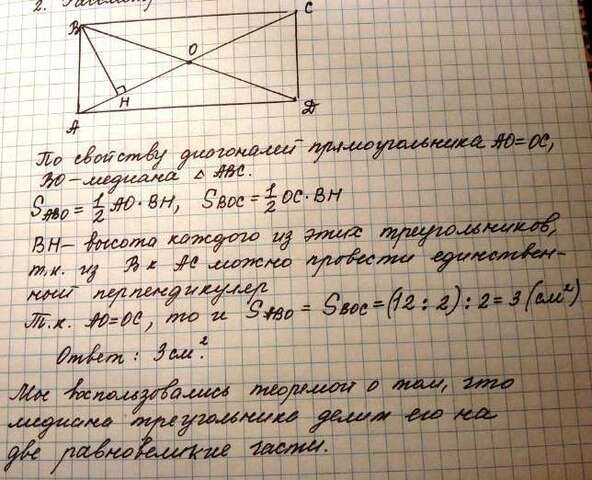 2. Рассмотр
B
C
O
H
A
D
По свойству диогоналей прямоугольника AO=OC,
BO-медиана △ ABC.
S_ABO = 1/2 AO·BH, S_BOC = 1/2 OC·BH
BH- высота каждого из этих треугольников,
т.к. из B к AC можно провести единствен-
ный перпендикуляр
Т.к. AO=OC, то и S_ABO = S_BOC = (12:2):2=3(см²)
Ответ: 3см².
Мы воспользовались теоремой о том, что
медиана треугольника делит его на
две равновеликие части.